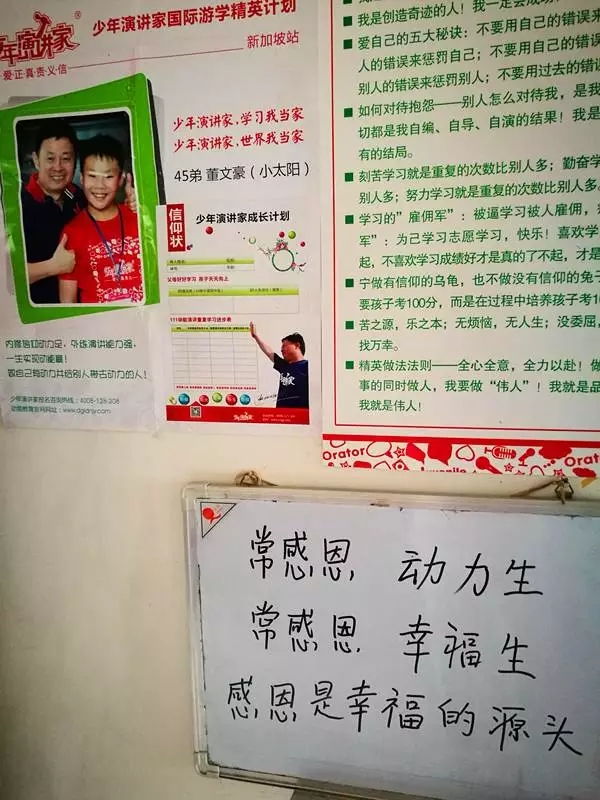 少年演讲家国际游学精英计划
年演讲家
新加坡站
爱正真责义信
少年演讲家,学习我当家
少年演讲家,世界我当家
45弟 董文豪（小太阳）
信仰状
少年演讲家成长计划
父母好好学习 孩子天天向上
内修信仰动力足，外练演讲能力强，
一生实现动能赢！
致自己有动力并给别人带去动力的人！
少年演讲家报名咨询热线：4008-128-208
我是创造奇迹的人！我一定会成功
爱自己的五大秘诀：不要用自己的错误
来惩罚自己；不要用自己的错误
别人的错误来惩罚别人；不要用过去的错误
如何对待抱怨——别人怎么对待我，是我
切都是我自编、自导、自演的结果！我是
有的结局。
刻苦学习就是重复的次数比别人多；勤奋学
别人多；努力学习就是重复的次数比别人多。
学习的”雇佣军”：被逼学习被人雇佣，
军”：为己学习志愿学习，快乐！喜欢学
起，不喜欢学习成绩好才是真的了不起，才是
宁做有信仰的乌龟，也不做没有信仰的兔子
要孩子考100分，而是在过程中培养孩子考1
苦之源，乐之本；无烦恼，无人生；没委屈，
找万幸。
精英做法法则——全心全意，全力以赴！做
事的同时做人，我要做“伟人”！我就是品
我就是伟人！
Orator
Orator
常感恩 动力生
常感恩 幸福生
感恩是幸福的源头